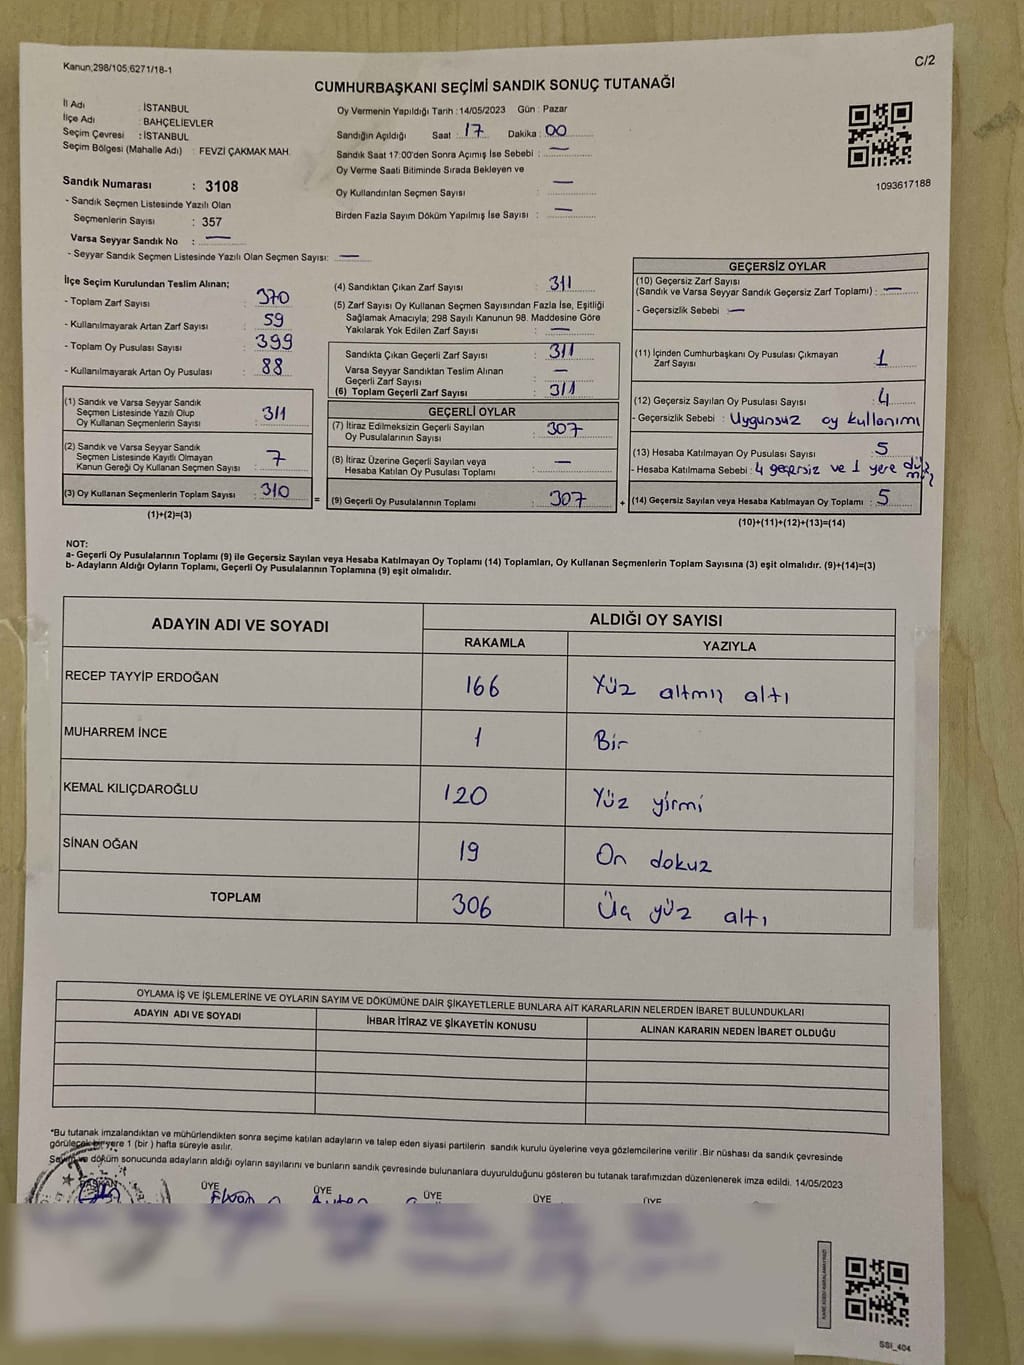 Kanun;298/105;6271/18-1
C/2
CUMHURBAŞKANI SEÇİMİ SANDIK SONUÇ TUTANAĞI
İl Adı : İSTANBUL
İlçe Adı : BAHÇELİEVLER
Seçim Çevresi : İSTANBUL
Seçim Bölgesi (Mahalle Adı) : FEVZİ ÇAKMAK MAH.
Sandık Numarası : 3108
- Sandık Seçmen Listesinde Yazılı Olan
Seçmenlerin Sayısı : 357
Varsa Seyyar Sandık No : —
- Seyyar Sandık Seçmen Listesinde Yazılı Olan Seçmen Sayısı: —
Oy Vermenin Yapıldığı Tarih : 14/05/2023 Gün : Pazar
Sandığın Açıldığı Saat : 17 Dakika : 00
Sandık Saat 17:00'den Sonra Açımış İse Sebebi : —
Oy Verme Saati Bitiminde Sırada Bekleyen ve
Oy Kullandırılan Seçmen Sayısı : —
Birden Fazla Sayım Döküm Yapılmış İse Sayısı : —
1093617188
İlçe Seçim Kurulundan Teslim Alınan;
- Toplam Zarf Sayısı : 370
- Kullanılmayarak Artan Zarf Sayısı : 59
- Toplam Oy Pusulası Sayısı : 399
- Kullanılmayarak Artan Oy Pusulası : 88
(1) Sandık ve Varsa Seyyar Sandık
Seçmen Listesinde Yazılı Olup
Oy Kullanan Seçmenlerin Sayısı : 311
(2) Sandık ve Varsa Seyyar Sandık
Seçmen Listesinde Kayıtlı Olmayan
Kanun Gereği Oy Kullanan Seçmen Sayısı : 7
(3) Oy Kullanan Seçmenlerin Toplam Sayısı : 310
(1)+(2)=(3)
=
(4) Sandıktan Çıkan Zarf Sayısı : 311
(5) Zarf Sayısı Oy Kullanan Seçmen Sayısından Fazla İse, Eşitliği
Sağlamak Amacıyla; 298 Sayılı Kanunun 98. Maddesine Göre
Yakılarak Yok Edilen Zarf Sayısı : —
Sandıkta Çıkan Geçerli Zarf Sayısı : 311
Varsa Seyyar Sandıktan Teslim Alınan
Geçerli Zarf Sayısı : —
(6) Toplam Geçerli Zarf Sayısı : 311
GEÇERLİ OYLAR
(7) İtiraz Edilmeksizin Geçerli Sayılan
Oy Pusulalarının Sayısı : 307
(8) İtiraz Üzerine Geçerli Sayılan veya
Hesaba Katılan Oy Pusulası Toplamı : —
(9) Geçerli Oy Pusulalarının Toplamı : 307
+
GEÇERSİZ OYLAR
(10) Geçersiz Zarf Sayısı
(Sandık ve Varsa Seyyar Sandık Geçersiz Zarf Toplamı) : —
- Geçersizlik Sebebi : —
(11) İçinden Cumhurbaşkanı Oy Pusulası Çıkmayan
Zarf Sayısı : 1
(12) Geçersiz Sayılan Oy Pusulası Sayısı : 4
- Geçersizlik Sebebi : Uygunsuz oy kullanımı
(13) Hesaba Katılmayan Oy Pusulası Sayısı : 5
- Hesaba Katılmama Sebebi : 4 geçersiz ve 1 yere
(14) Geçersiz Sayılan veya Hesaba Katılmayan Oy Toplamı : 5
(10)+(11)+(12)+(13)=(14)
NOT:
a- Geçerli Oy Pusulalarının Toplamı (9) ile Geçersiz Sayılan veya Hesaba Katılmayan Oy Toplamı (14) Toplamları, Oy Kullanan Seçmenlerin Toplam Sayısına (3) eşit olmalıdır. (9)+(14)=(3)
b- Adayların Aldığı Oyların Toplamı, Geçerli Oy Pusulalarının Toplamına (9) eşit olmalıdır.
ADAYIN ADI VE SOYADI
ALDIĞI OY SAYISI
RAKAMLA YAZIYLA
RECEP TAYYİP ERDOĞAN 166 Yüz altmış altı
MUHARREM İNCE 1 Bir
KEMAL KILIÇDAROĞLU 120 Yüz yirmi
SİNAN OĞAN 19 On dokuz
TOPLAM 306 Üç yüz altı
OYLAMA İŞ VE İŞLEMLERİNE VE OYLARIN SAYIM VE DÖKÜMÜNE DAİR ŞİKAYETLERLE BUNLARA AİT KARARLARIN NELERDEN İBARET BULUNDUKLARI
ADAYIN ADI VE SOYADI İHBAR İTİRAZ VE ŞİKAYETİN KONUSU ALINAN KARARIN NEDEN İBARET OLDUĞU
*Bu tutanak imzalandıktan ve mühürlendikten sonra seçime katılan adayların ve talep eden siyasi partilerin sandık kurulu üyelerine veya gözlemcilerine verilir .Bir nüshası da sandık çevresinde
görülecek bir yere 1 (bir ) hafta süreyle asılır.
Sayım ve döküm sonucunda adayların aldığı oyların sayılarını ve bunların sandık çevresinde bulunanlara duyurulduğunu gösteren bu tutanak tarafımızdan düzenlenerek imza edildi. 14/05/2023
ÜYE ÜYE ÜYE ÜYE ÜYE
SSI_404